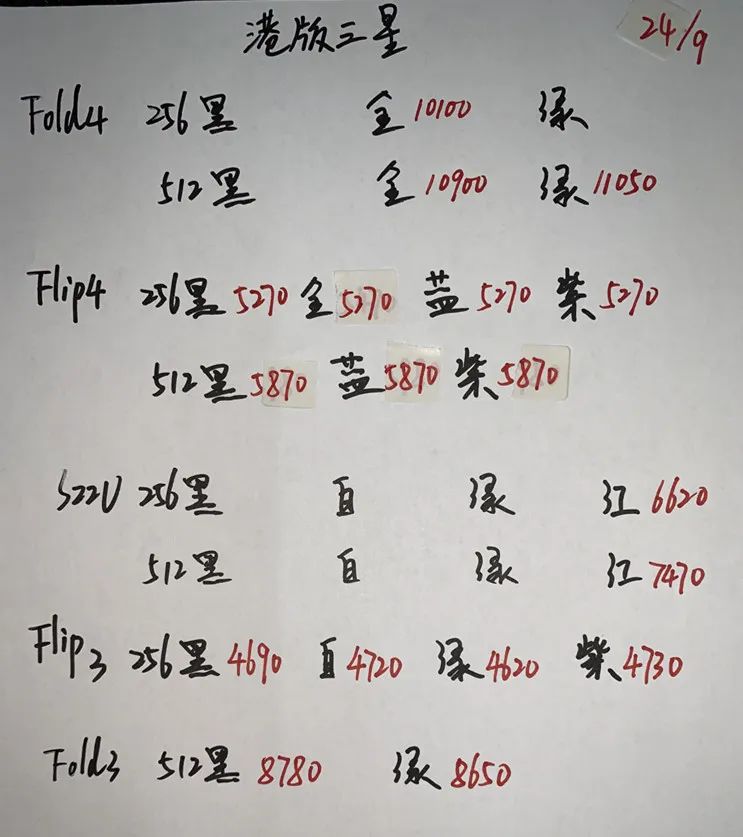 港版三星 24/9
Fold4 256黑 金10100 绿
512黑 金10900 绿11050
Flip4 256黑5270 金5270 蓝5270 紫5270
512黑5870 蓝5870 紫5870
S22U 256黑 白 绿 红6620
512黑 白 绿 红7470
Flip3 256黑4690 白4720 绿4620 紫4730
Fold3 512黑8780 绿8650